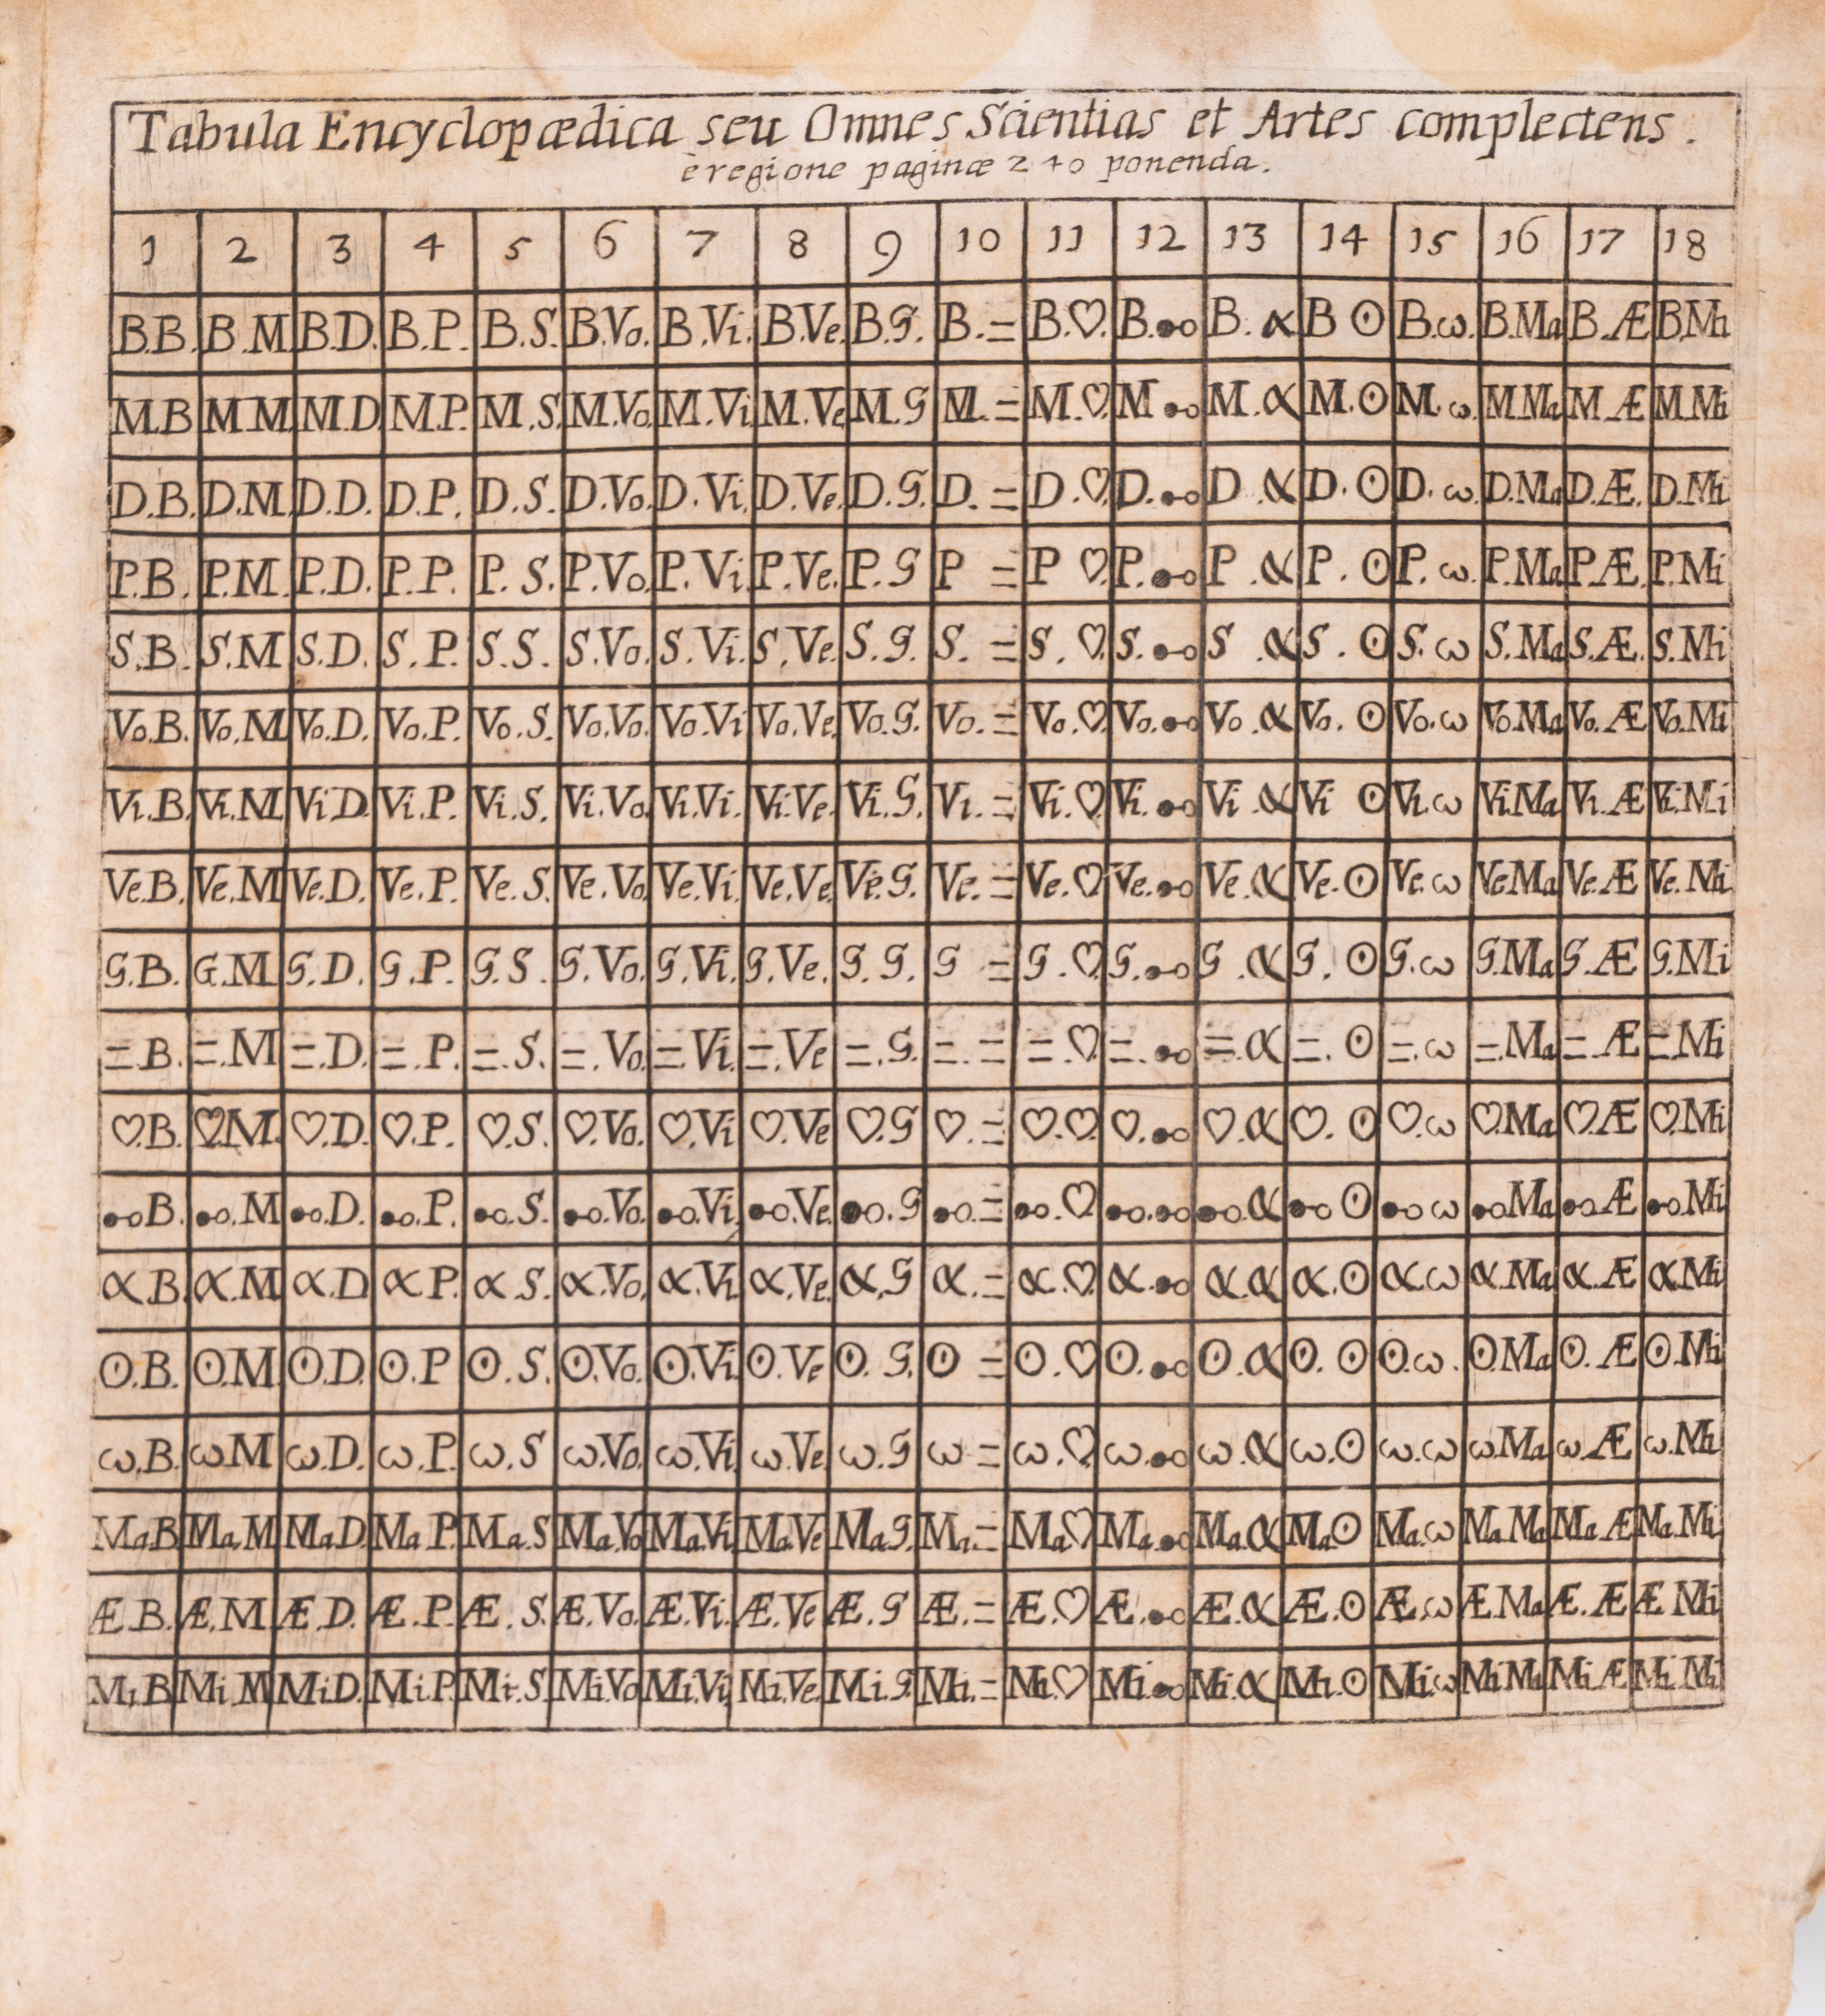 Tabula Encyclopædica seu Omnes Scientias et Artes complectens.
è regione paginæ 240 ponenda.
1 2 3 4 5 6 7 8 9 10 11 12 13 14 15 16 17 18
B.B. B.M B.D. B.P. B.S. B.Vo. B.Vi. B.Ve. B.G. B.= B.♡. B.●-o B.α B ⊙ B.ω. B.Ma B.Æ B.Mi
M.B M.M M.D M.P. M.S. M.Vo. M.Vi M.Ve M.G M.= M.♡. M ●-o M.α M.⊙ M.ω. M.Ma M.Æ M.Mi
D.B. D.M. D.D. D.P. D.S. D.Vo. D.Vi. D.Ve. D.G. D.= D.♡. D.●-o D.α D.⊙ D.ω. D.Ma D.Æ. D.Mi
P.B. P.M. P.D. P.P. P.S. P.Vo. P.Vi P.Ve. P.G P = P ♡. P.●-o P.α P.⊙ P.ω. P.Ma P.Æ. P.Mi
S.B. S.M S.D. S.P. S.S. S.Vo. S.Vi. S.Ve. S.G. S.= S.♡. S.●-o S.α S.⊙ S.ω S.Ma S.Æ. S.Mi
Vo.B. Vo.M Vo.D. Vo.P. Vo.S. Vo.Vo. Vo.Vi Vo.Ve. Vo.G. Vo.= Vo.♡ Vo.●-o Vo.α Vo.⊙ Vo.ω Vo.Ma Vo.Æ Vo.Mi
Vi.B. Vi.M Vi D. Vi.P. Vi.S. Vi.Vo. Vi.Vi. Vi.Ve. Vi.G. Vi.= Vi.♡ Vi.●-o Vi.α Vi ⊙ Vi.ω Vi.Ma Vi.Æ Vi.Mi
Ve.B. Ve.M Ve.D. Ve.P. Ve.S. Ve.Vo. Ve.Vi. Ve.Ve. Ve.G. Ve.= Ve.♡ Ve.●-o Ve.α Ve.⊙ Ve.ω Ve Ma Ve.Æ Ve.Mi
G.B. G.M G.D. G.P. G.S. G.Vo. G.Vi. G.Ve. G.G. G = G.♡. G.●-o G.α G.⊙ G.ω G.Ma G.Æ G.Mi
=.B. =.M =.D. =.P. =.S. =.Vo. =.Vi. =.Ve =.G. =.= =.♡. =.●-o =.α =.⊙ =.ω =.Ma =.Æ =.Mi
♡.B. ♡.M. ♡.D. ♡.P. ♡.S. ♡.Vo. ♡.Vi ♡.Ve ♡.G ♡.= ♡.♡. ♡.●-o ♡.α ♡.⊙ ♡.ω ♡.Ma ♡.Æ ♡.Mi
●-o B. ●-o.M ●-o.D. ●-o.P. ●-o.S. ●-o.Vo. ●-o.Vi. ●-o.Ve. ●-o.G ●-o.= ●-o.♡ ●-o.●-o ●-o.α ●-o ⊙ ●-o ω ●-o Ma ●-o Æ ●-o.Mi
α.B. α.M α.D α P. α.S. α.Vo. α.Vi α.Ve. α.G α.= α.♡. α.●-o α.α α.⊙ α.ω α.Ma α.Æ α.Mi
⊙.B. ⊙.M ⊙.D. ⊙.P ⊙.S. ⊙.Vo. ⊙.Vi. ⊙.Ve ⊙.G. ⊙ = ⊙.♡ ⊙.●-o ⊙.α ⊙.⊙ ⊙.ω. ⊙.Ma ⊙.Æ ⊙.Mi
ω.B. ω.M ω.D. ω.P. ω.S ω.Vo. ω.Vi. ω.Ve. ω.G ω = ω.♡. ω.●-o ω.α ω.⊙ ω.ω ω.Ma ω.Æ ω.Mi
Ma.B Ma.M Ma.D Ma P. Ma.S Ma.Vo Ma.Vi. Ma.Ve Ma.G. Ma.= Ma.♡ Ma.●-o Ma.α Ma.⊙ Ma.ω Ma Ma Ma.Æ Ma.Mi
Æ.B. Æ.M Æ.D. Æ.P. Æ.S. Æ.Vo. Æ.Vi. Æ.Ve Æ.G Æ.= Æ.♡ Æ.●-o Æ.α Æ.⊙ Æ.ω Æ.Ma Æ.Æ Æ Mi
Mi.B Mi.M Mi.D. Mi.P. Mi.S Mi.Vo Mi.Vi. Mi.Ve. Mi.G. Mi.= Mi.♡ Mi.●-o Mi.α Mi.⊙ Mi.ω Mi Ma Mi Æ Mi.Mi